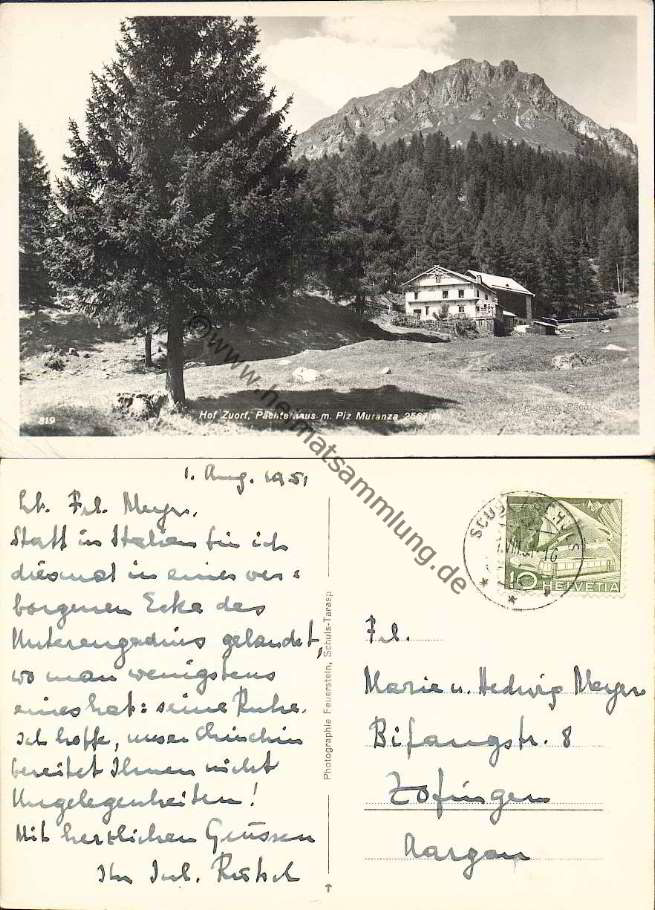 819
Hof Zuort, Pächterhaus m. Piz Muranza 2567 m.
www.heimatsammlung.de
1. Aug. 1951
Lb. Frl. Meyer,
Statt in Italien bin ich
diesmal in einer ver=
borgenen Ecke des
Unterengadins gelandet,
wo man wenigstens
eines hat: seine Ruhe.
Ich hoffe, unser
bereitet Ihnen nicht
Ungelegenheiten!
Mit herzlichen Grüssen
Ihr
Photographie Feuerstein, Schuls-Tarasp
10 HELVETIA
Frl.
Marie u. Hedwig Meyer
Bifangstr. 8
Zofingen
Aargau